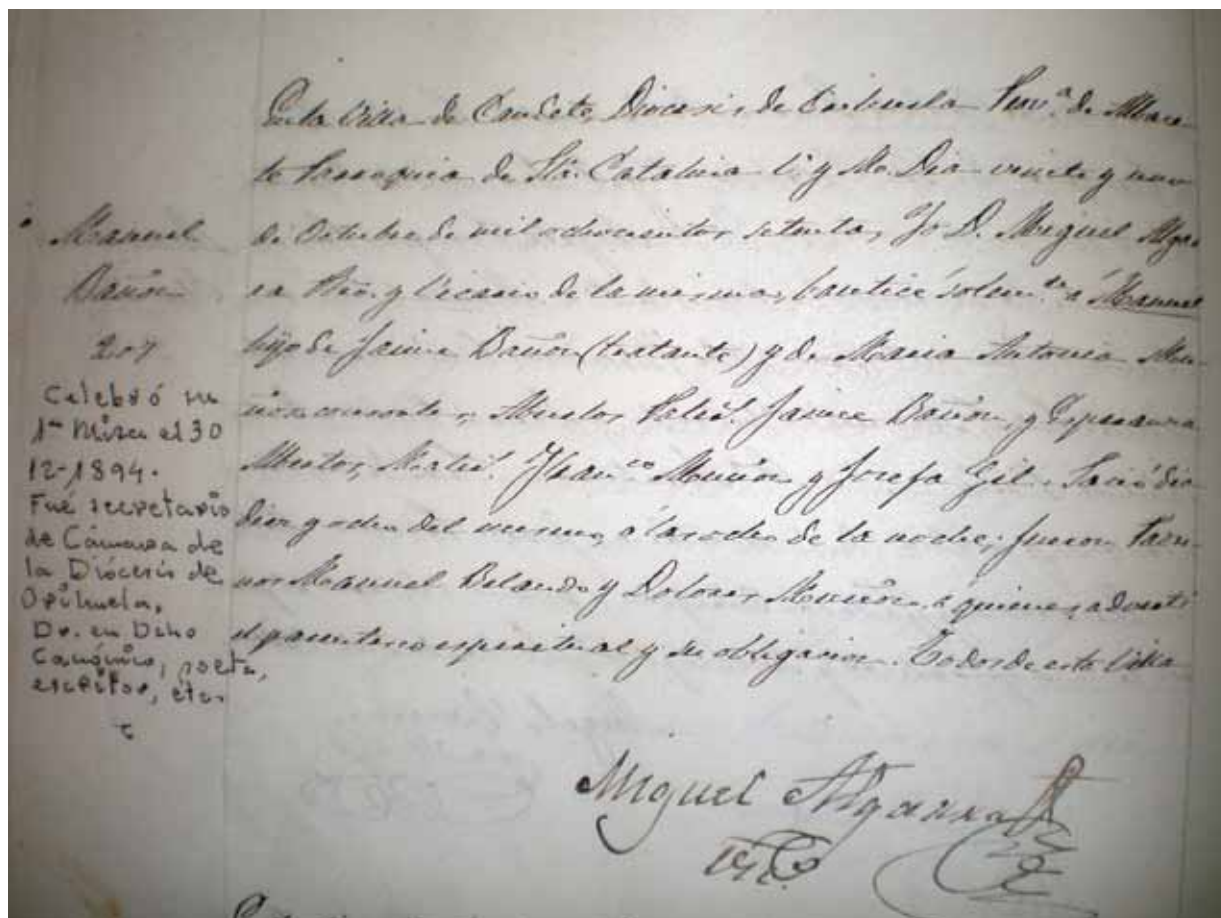 Manuel
Bañón
207
Celebró su
1ª Misa el 30
12-1894.
Fué secretario
de Cámara de
la Diócesis de
Orihuela,
Dr. en Dcho
Canónico, poeta,
escritor, etc.
En la Villa de Caudete, Diocesis de Orihuela Prov.ª de Albace-
te Parroquia de Sta. Catalina V. y M. Dia veinte y
de Octubre de mil ochocientos setenta, Yo D. Miguel Algar-
ra Pbro. y Vicario de la misma, bauticé solem.te á Manuel
hijo de Jaime Bañón (tratante) y de Maria Antonia Mu-
ñoz consorte, Abuelos Pater.s Jaime Bañón, y Esperanza
Mater.s Fran.co y Josefa Gil. Nació dia
diez y ocho del mismo, á las ocho de la noche; fueron Padri-
nos Manuel Belando y Dolores a quienes advertí
el parentesco espiritual y su obligacion. Todos de esta Villa
Miguel Algarra
Vic.º